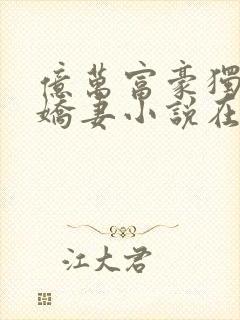 億萬富豪獨
嬌妻小說在
江大君